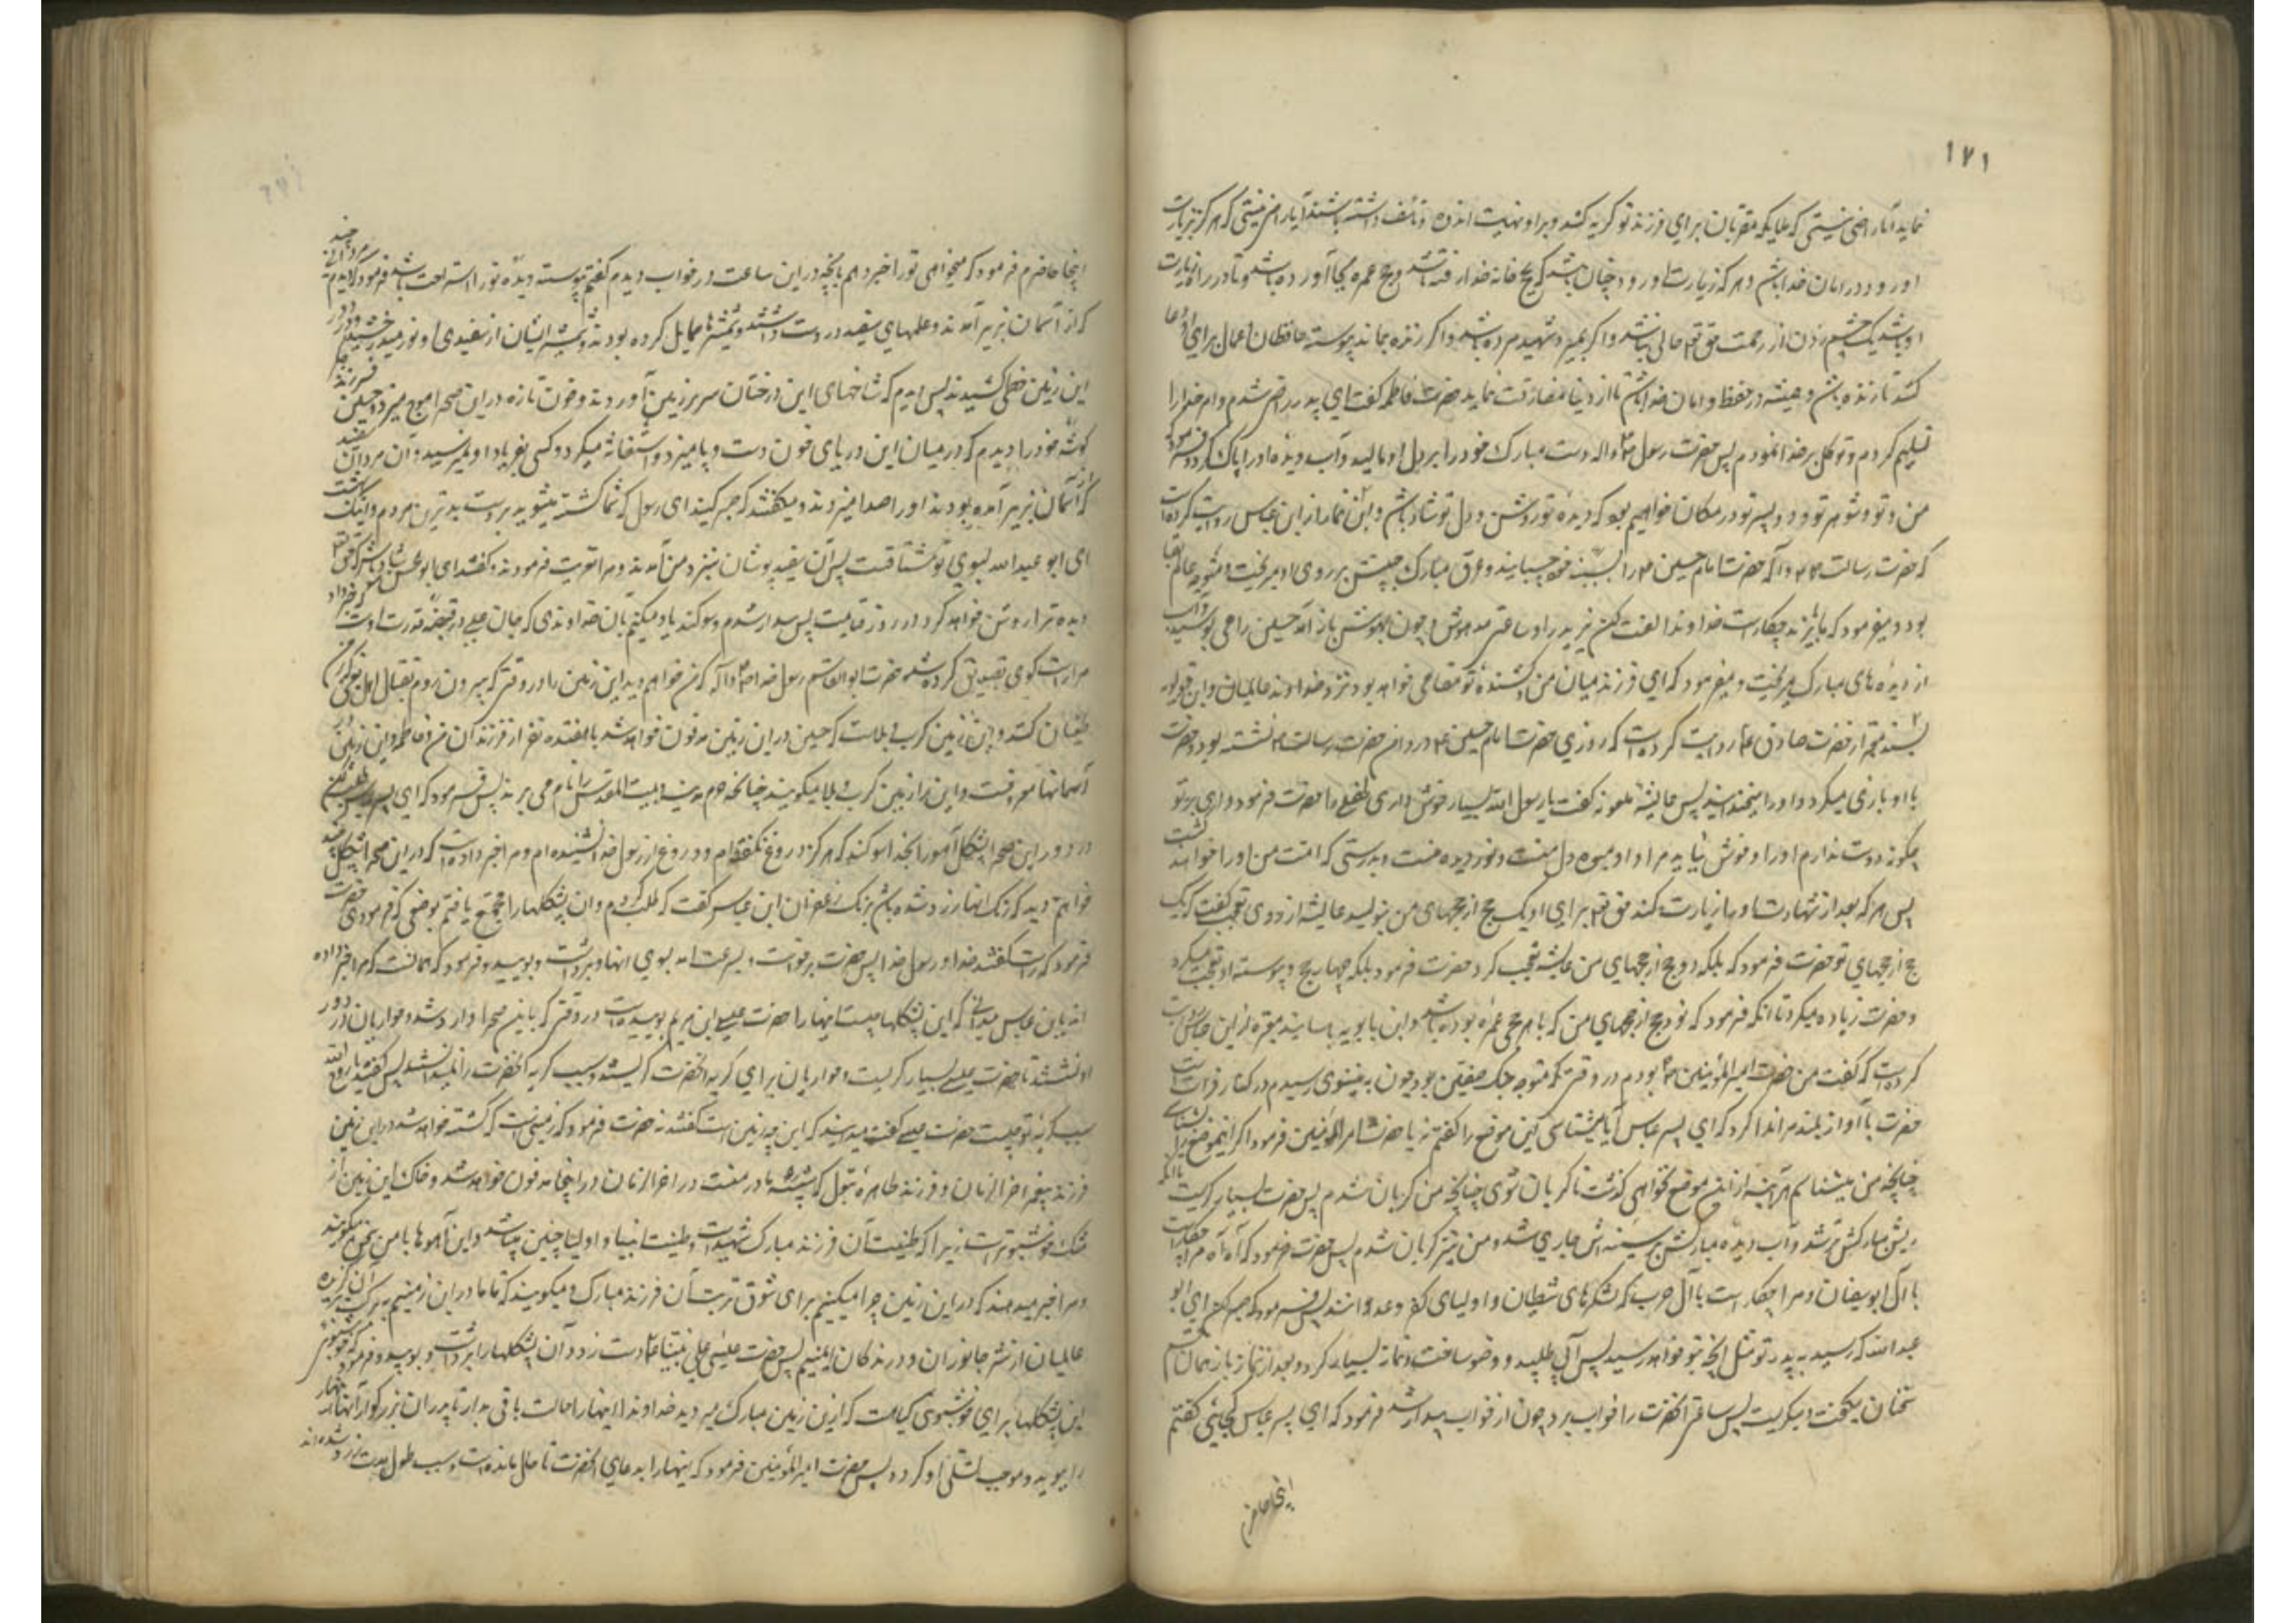 ۱۷۱
نماید آیا راضی نیستی که ملایکه مقربان برای فرزند تو گریه کنند و بر او نهایت اندوه و تاسف داشته باشند آیا راضی نیستی که هر که بزیارت
او رود در امان خدا باشد و هر که زیارت او رود چنان باشد که بحج خانه خدا رفته باشد و حج و عمره بجا آورده باشد و تا در راه زیارت
او باشد یک چشم زدن از رحمت حق تعالی خالی نباشد و اگر بمیرد شهید مرده باشد و اگر زنده بماند پیوسته حافظان اعمال برای او دعا
کنند تا زنده باشد و همیشه در حفظ و امان خدا باشد تا از دنیا مفارقت نماید حضرت فاطمه گفت ای پدر راضی شدم و امر خدا را
تسلیم کردم و توکل بر خدا نمودم پس حضرت رسول ص و اله دست مبارک خود را بر دل او مالید و آب دیده او را پاک کرد و فرمود
من و تو و شوهر تو و دو پسر تو در مکان خواهیم بود که دیده تو روشن و دل تو شاد باشد و ابن نما از ابن عباس روایت کرده است
که حضرت رسالت ص و آله حضرت امام حسین ع را بسینه خود چسبانید و عرق مبارک جبینش بر روی او میریخت و متوجه عالم بقا
بود و میفرمود که مرا با یزید چکار است خداوندا لعنت کن یزید را و ساعتی مدهوش بود چون بهوش باز آمد حسین را می بوسید و آب
از دیده های مبارک میریخت و میفرمود که ای فرزند میان من و کشنده تو مقامی خواهد بود نزد خداوند عالمیان و ابن قولویه
بسند معتبر از حضرت صادق ع روایت کرده است که روزی حضرت امام حسین ع در دامن حضرت رسالت ص نشسته بود و حضرت
با او بازی میکرد و او را میخندانید پس عایشه ملعونه گفت یا رسول الله بسیار خوش داری این طفل را حضرت فرمود وای بر تو
چگونه دوست ندارم او را و خوش نیاید مرا و او میوه دل منست و نور دیده منست و بدرستی که امت من او را خواهند کشت
پس هر که بعد از شهادت او را زیارت کند حق تعالی برای او یک حج از حجهای من بنویسد عایشه از روی تعجب گفت که یک
حج از حجهای تو حضرت فرمود که بلکه دو حج از حجهای من عایشه تعجب کرد حضرت فرمود بلکه چهار حج و پیوسته او تعجب میکرد
و حضرت زیاده میکرد تا آنکه فرمود که نود حج از حجهای من که با هر حجی عمره بوده باشد و ابن بابویه باسانید معتبره از ابن عباس روایت
کرده است که گفت من حضرت امیر المؤمنین ع بودم در وقتی که متوجه جنگ صفین بود چون به نینوی رسیدم در کنار فرات است
حضرت با آواز بلند مرا ندا کرد که ای پسر عباس آیا میشناسی این موضع را گفتم نه یا حضرت امیر المؤمنین فرمود اگر این موضع را بشناسی
چنانچه من میشناسم هر آینه از این موضع نخواهی گذشت تا گریان شوی چنانچه من گریان شدم پس حضرت بسیار گریست تا آنکه
ریش مبارکش تر شد و آب دیده مبارکش بر سینه اش جاری شد و من نیز گریان شدم پس حضرت فرمود که آه آه مرا چکار است
با آل ابوسفیان و مرا چکار است با آل حرب که لشکرهای شیطان و اولیای کفر و عدوانند پس فرمود که صبر کن ای ابو
عبدالله که رسید به پدر تو مثل آنچه بتو خواهد رسید پس آبی طلبید و وضو ساخت و نماز بسیار کرد و بعد از نماز باز همان
سخنان میگفت و میگریست پس ساعتی آنحضرت را خواب برد چون از خواب بیدار شد فرمود که ای پسر عباس کجائی گفتم
اینجا حاضرم
اینجا حاضرم فرمود که میخواهی تو را خبر دهم بآنچه در این ساعت در خواب دیدم گفتم پیوسته دیده تو را استراحت باشد فرمود که دیدم مردانی چند
که از آسمان بزیر آمدند و علمهای سفید در دست داشتند و شمشیرها حمایل کرده بودند و شمشیر ایشان از سفیدی و نور میدرخشید و در دور
این زمین خطی کشیدند پس دیدم که شاخهای این درختان سر بر زمین آوردند و خون تازه در این صحرا موج میزد و حسین فرزند و جگر
گوشه خود را دیدم که در میان این دریای خون دست و پا میزد و استغاثه میکرد و کسی بفریاد او نمیرسید و آن مردان سفید
که از آسمان بزیر آمده بودند او را صدا میزدند و میگفتند که صبر کنید ای آل رسول که شما کشته میشوید بر دست بدترین مردم و اینک بهشت
ای ابو عبد الله بسوی تو مشتاقست پس آن سفید پوشان بنزد من آمدند و مرا تعزیت فرمودند و گفتند ای ابوالحسن شاد باش که حق تعالی
دیده ترا روشن خواهد کرد در روز قیامت پس بیدار شدم و سوگند یاد میکنم بآن خداوندی که جان علی در قبضه قدرت اوست که خبر داد
مرا راست گوی تصدیق کرده شده حضرت ابوالقاسم رسول خدا ص و آله که من خواهم دید این زمین را در وقتی که بیرون روم بقتال اهل بغی که بر من
طغیان کنند و این زمین کرب و بلاست که حسین در این زمین مدفون خواهد شد با هفده نفر از فرزندان من و فاطمه و این زمین در
آسمانها معروفست و این را زمین کرب و بلا میگویند چنانچه حرم مدینه و بیت المقدس را نام می برند پس فرمود که ای پسر عباس طلب کن
در دور این صحرا پشکل آهو را بخدا سوگند که هرگز دروغ نگفته ام و دروغ از رسول خدا نشنیده ام و مرا خبر داده است که در این صحرا پشکل چند
خواهم دید که رنگ آنها زرد شده باشد برنگ زعفران ابن عباس گفت که طلب کردم و آن پشکلها را مجتمع یافتم بوضعی که فرمودی حضرت
فرمود که راست گفتند خدا و رسول خدا پس حضرت برخواست و بسرعت آمد بسوی آنها و برداشت و بویید و فرمود که همانست که مرا خبر داده
اند یابن عباس میدانی که این پشکلها چیست اینها را حضرت عیسی ابن مریم بوییده است در وقتی که باین صحرا وارد شد و حواریان در دور
او نشستند تا حضرت عیسی بسیار گریست و حواریان برای گریه آنحضرت گریستند و سبب گریه آنحضرت را ندانستند پس گفتند یا روح الله
سبب گریه تو چیست حضرت عیسی گفت میدانید که این چه زمین است گفتند نه حضرت فرمود که زمینی است که کشته خواهد شد در این زمین
فرزند پیغمبر آخر الزمان و فرزند طاهره بتول که شبیه مادر منست در آخر الزمان و در اینجا مدفون خواهد شد و خاک این زمین از
مشک خوشبوتر است زیرا که طینت آن فرزند مبارک شهید است و طینت انبیا و اولیا چنین میباشد و این آهوها با من سخن میگویند
و مرا خبر میدهند که در این زمین چرا میکنیم برای شوق تربت آن فرزند مبارک و میگویند که تا ما در این زمینیم ببرکت آن فرزند
عالمیان از شر جانوران و درندگان ایمنیم پس حضرت عیسی علی نبینا ع دست زد و آن پشکلها را برداشت و بویید و فرمود که خوشبوئی
این پشکلها برای خوشبوئی گیاهست که از این زمین مبارک میروید خداوندا اینها را بحالت باقی بدار تا پدر آن بزرگوار آنها را
را ببوید و موجب تسلی او گردد پس حضرت امیر المؤمنین فرمود که اینها را بدعای آنحضرت تا حال مانده است و بسبب طول مدت زرد شده اند